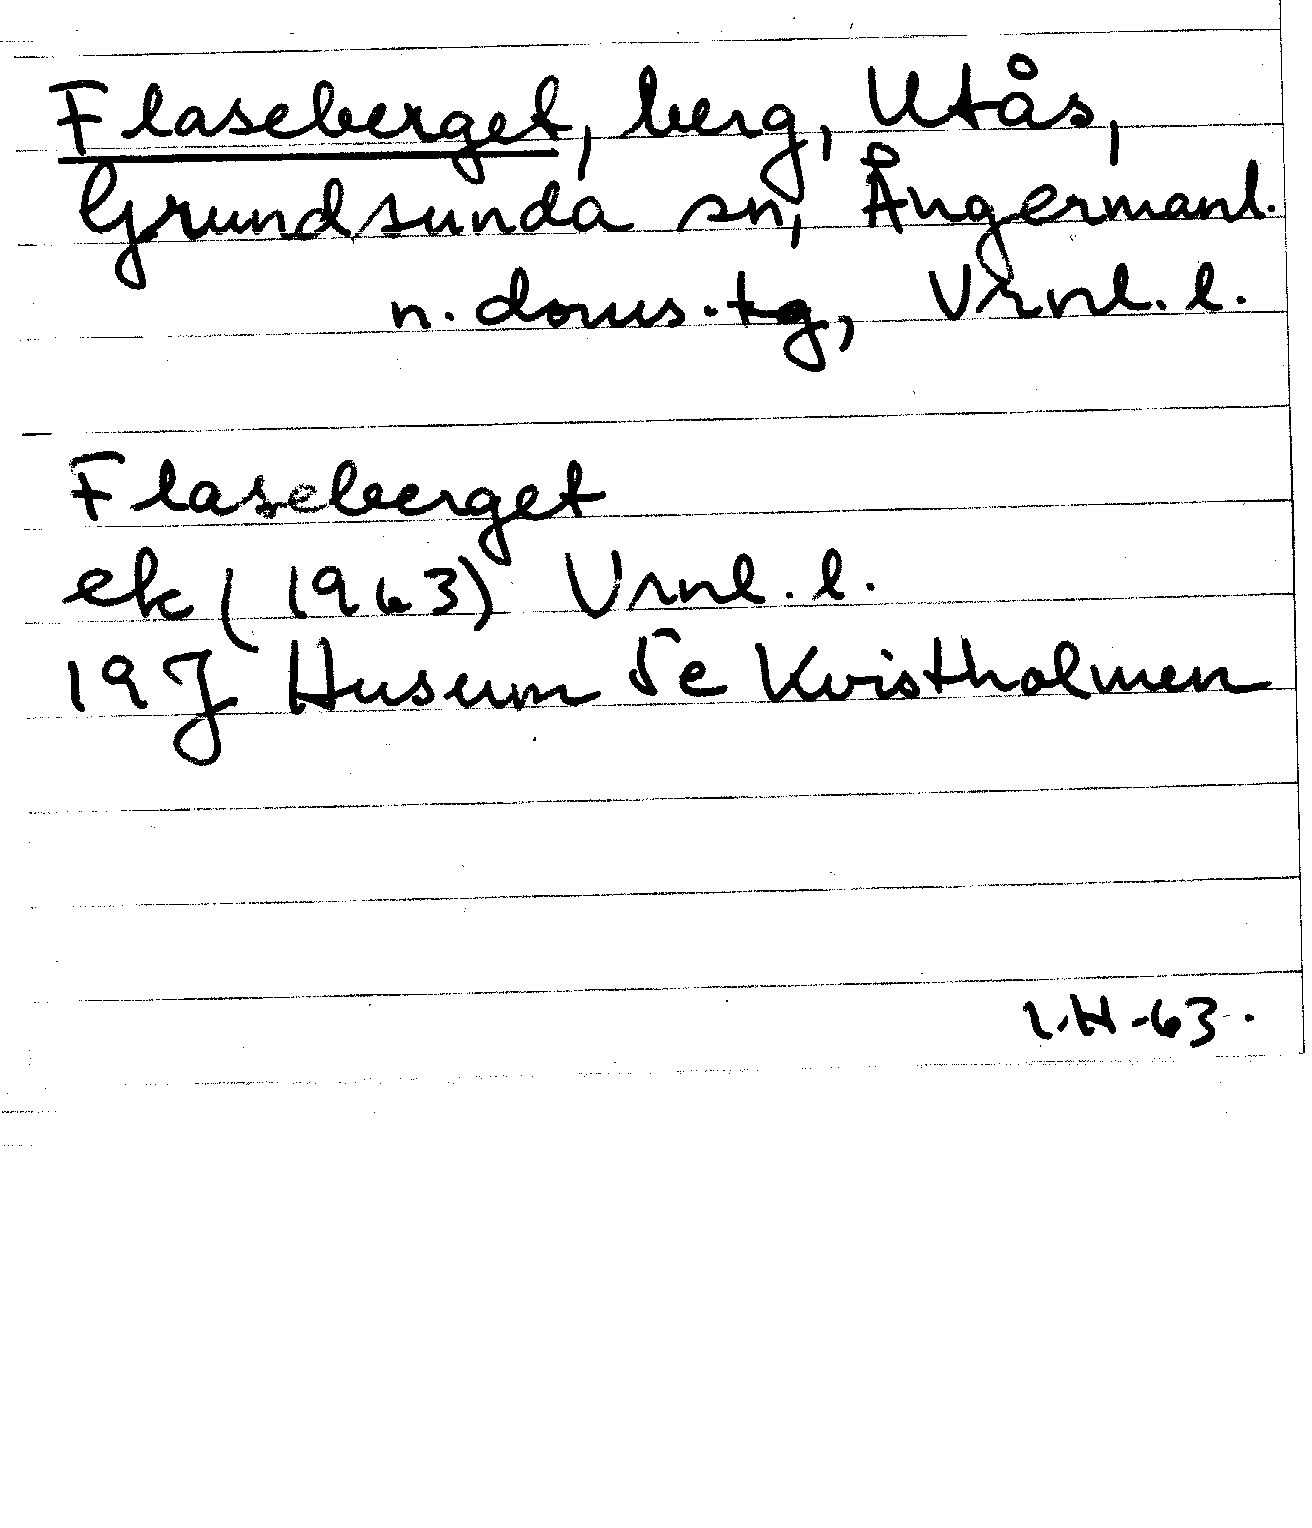 Flaseberget, berg, Utås,
Grundsunda sn, Ångermanl.
n. doms. tg, Vrnl. l.
Flaseberget
ek (1963) Vrnl. l.
19 J Husum 5e Kvistholmen
I.H -63.